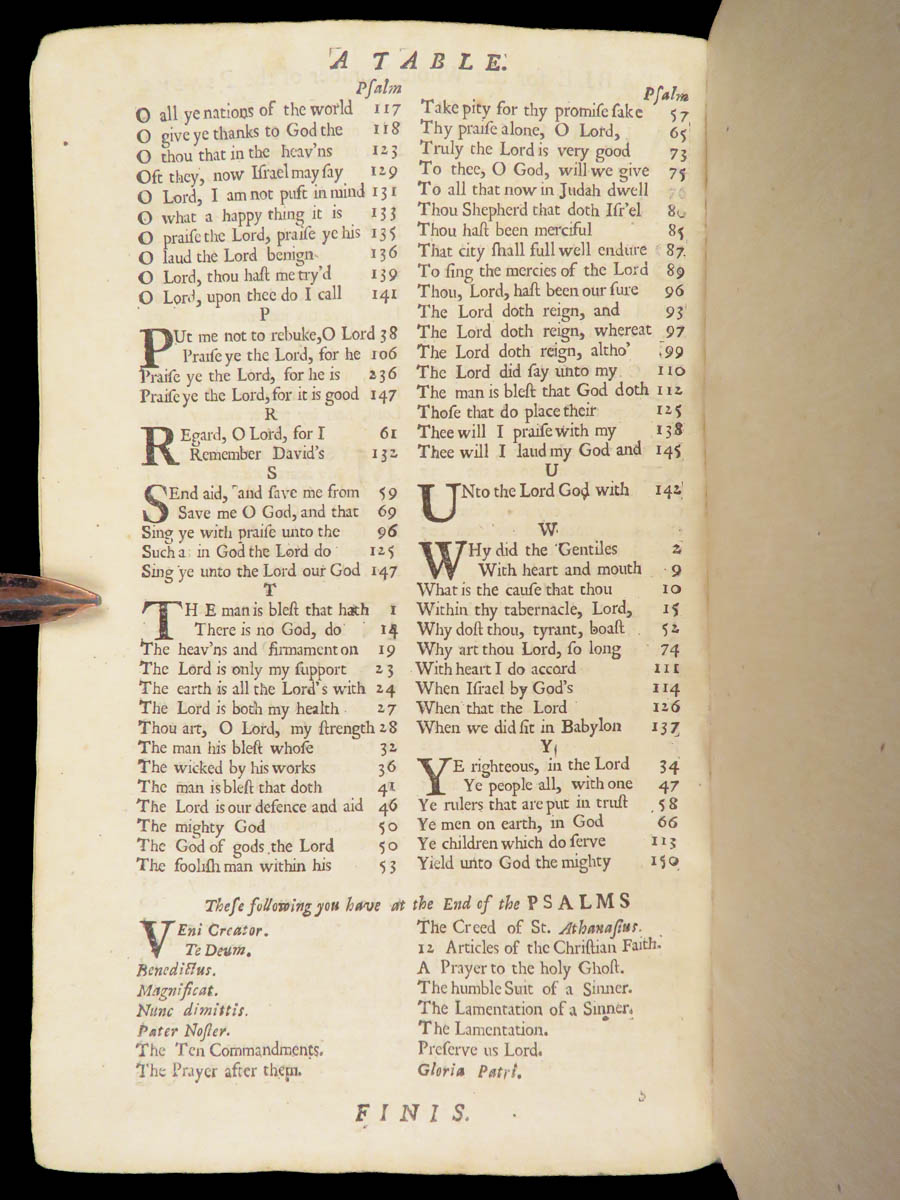 A TABLE.
Pſalm
O all ye nations of the world 117
O give ye thanks to God the 118
O thou that in the heav'ns 123
Oft they, now Iſrael may ſay 129
O Lord, I am not puft in mind 131
O what a happy thing it is 133
O praiſe the Lord, praiſe ye his 135
O laud the Lord benign 136
O Lord, thou haſt me try'd 139
O Lord, upon thee do I call 141
P
PUt me not to rebuke, O Lord 38
Praiſe ye the Lord, for he 106
Praiſe ye the Lord, for he is 236
Praiſe ye the Lord, for it is good 147
R
REgard, O Lord, for I 61
Remember David's 132
S
SEnd aid, and ſave me from 59
Save me O God, and that 69
Sing ye with praiſe unto the 96
Such as in God the Lord do 125
Sing ye unto the Lord our God 147
T
THE man is bleſt that hath 1
There is no God, do 14
The heav'ns and firmament on 19
The Lord is only my ſupport 23
The earth is all the Lord's with 24
The Lord is both my health 27
Thou art, O Lord, my ſtrength 28
The man his bleſt whoſe 32
The wicked by his works 36
The man is bleſt that doth 41
The Lord is our defence and aid 46
The mighty God 50
The God of gods the Lord 50
The fooliſh man within his 53
Pſalm
Take pity for thy promiſe ſake 57
Thy praiſe alone, O Lord, 65
Truly the Lord is very good 73
To thee, O God, will we give 75
To all that now in Judah dwell 76
Thou Shepherd that doth Iſr'el 80
Thou haſt been merciful 85
That city ſhall full well endure 87
To ſing the mercies of the Lord 89
Thou, Lord, haſt been our ſure 96
The Lord doth reign, and 93
The Lord doth reign, whereat 97
The Lord doth reign, altho' 99
The Lord did ſay unto my 110
The man is bleſt that God doth 112
Thoſe that do place their 125
Thee will I praiſe with my 138
Thee will I laud my God and 145
U
UNto the Lord God with 142
W.
WHy did the Gentiles 2
With heart and mouth 9
What is the cauſe that thou 10
Within thy tabernacle, Lord, 15
Why doſt thou, tyrant, boaſt 52
Why art thou Lord, ſo long 74
With heart I do accord 111
When Iſrael by God's 114
When that the Lord 126
When we did ſit in Babylon 137
Y
YE righteous, in the Lord 34
Ye people all, with one 47
Ye rulers that are put in truſt 58
Ye men on earth, in God 66
Ye children which do ſerve 113
Yield unto God the mighty 150
Theſe following you have at the End of the PSALMS
VEni Creator.
Te Deum.
Benedictus.
Magnificat.
Nunc dimittis.
Pater Noſter.
The Ten Commandments.
The Prayer after them.
The Creed of St. Athanaſius.
12 Articles of the Chriſtian Faith.
A Prayer to the holy Ghoſt.
The humble Suit of a Sinner.
The Lamentation of a Sinner.
The Lamentation.
Preſerve us Lord.
Gloria Patri.
FINIS.